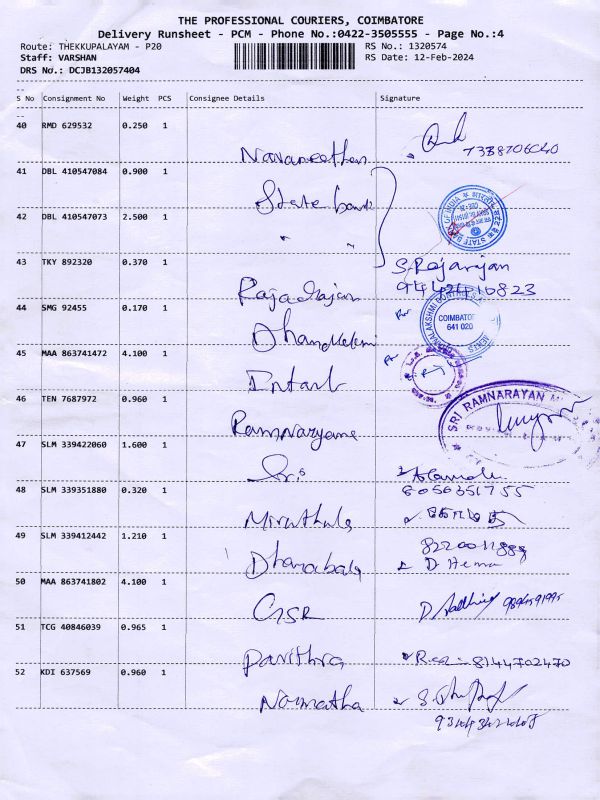 THE PROFESSIONAL COURIERS, COIMBATORE
Delivery Runsheet - PCM - Phone No.:0422-3505555 - Page No.:4
Route: THEKKUPALAYAM - P20 RS No.: 1320574
Staff: VARSHAN RS Date: 12-Feb-2024
DRS No.: DCJB132057404
S No Consignment No Weight PCS Consignee Details Signature
40 RMD 629532 0.250 1
Navaneethan 7338706040
41 DBL 410547084 0.900 1
State bank
STATE BANK OF INDIA
42 DBL 410547073 2.500 1
" "
43 TKY 892320 0.370 1 S. Rajarajan
Rajarajan
44 SMG 92455 0.170 1
COIMBATORE
641 020
45 MAA 863741472 4.100 1
46 TEN 7687972 0.960 1
SRI RAMNARAYAN
47 SLM 339422060 1.600 1
8056351755
48 SLM 339351880 0.320 1
Miruthula
49 SLM 339412442 1.210 1
Dhanabala D. Hema
50 MAA 863741802 4.100 1
GSR
51 TCG 40846039 0.965 1
Pavithra 8144702470
52 KDI 637569 0.960 1
Namratha